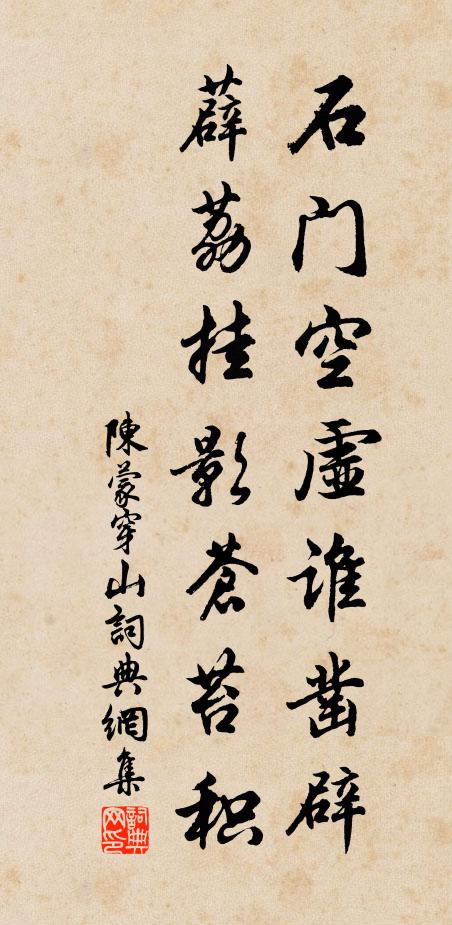 石门空虚谁凿辟
薜荔挂影苍苔积
陳蒙穿山詞典網集
詞典网印